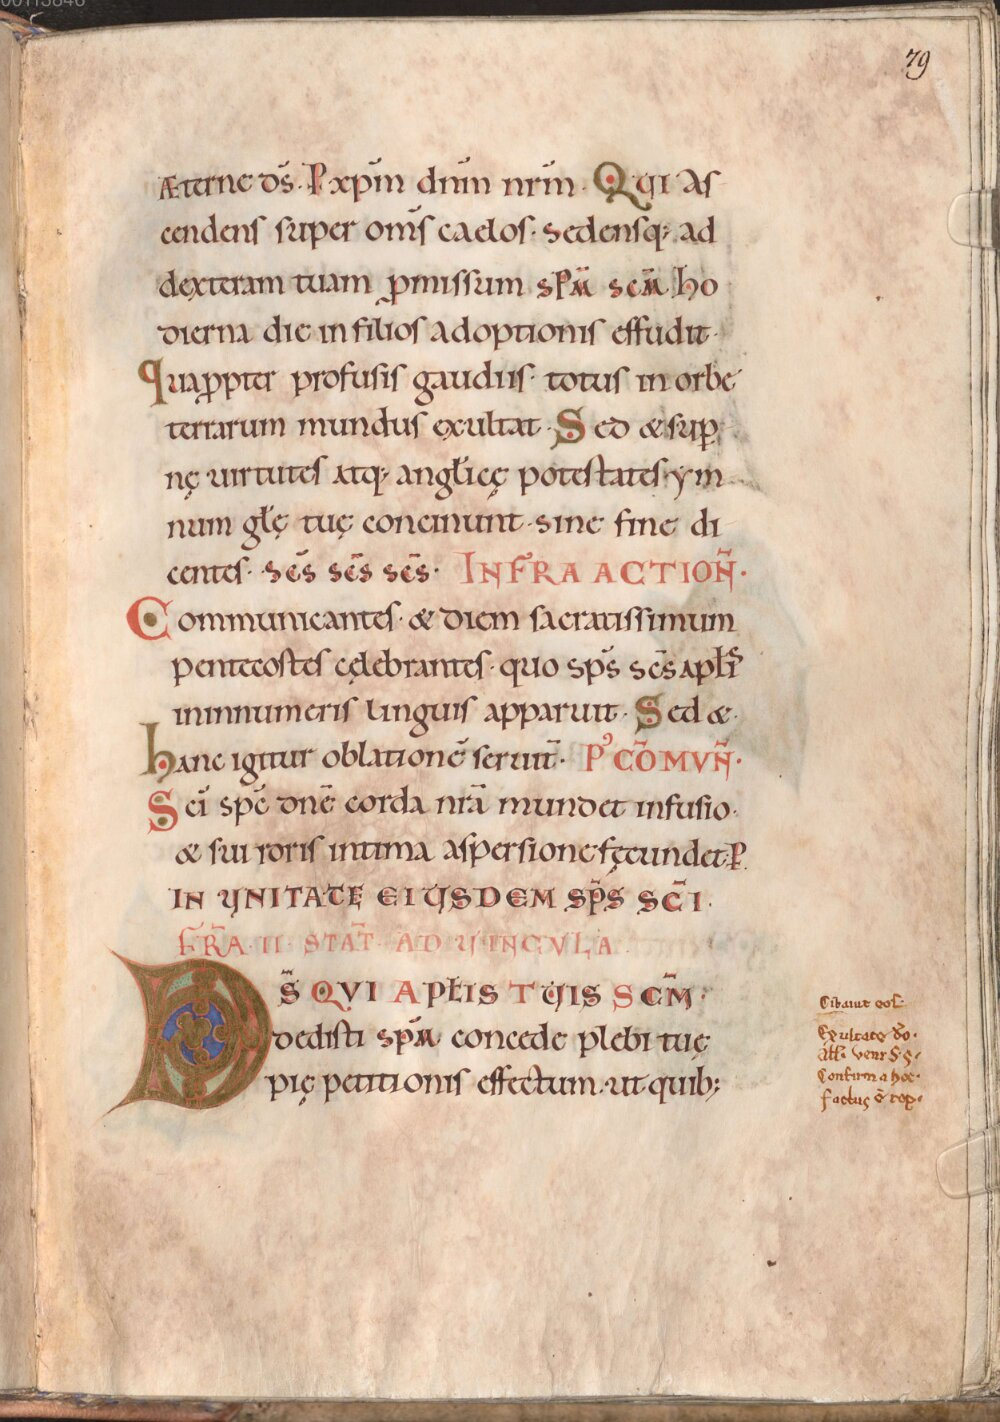 79
Æterne ds̄. P xpm̄ dnm̄ nrm̄. Qui As
cendens super om̄s caelos. sedensq; ad
dexteram tuam ꝓmissum spm̄ scm̄. ho
dierna die in filios adoptionis effudit.
quaꝓpter profusis gaudiis. totus in orbe
terrarum mundus exultat. Sed & sup̱
nę uirtutes atq; anglicę potestates. ym
num glę tuę concinunt. sine fine di
centes. sc̄s sc̄s sc̄s. INFRA ACTION̄.
Communicantes. & diem sacratissimum
pentecostes cęlebrantes. quo sps̄ sc̄s aplis
in innumeris linguis apparuit. Sed &.
hanc igitur oblationē seruit̄. P' CO̅MVN̄.
Sci̅ spc̄ dnē corda nrā mundet infusio.
& sui roris intima aspersione fęcundet. P.
IN UNITATE EIUSDEM SPS̄ SC̄I.
FR̄A. II. STAT̄. AD UINCVLA.
DS̄ QVI APŁIS TUIS SCM̄.
dedisti spm̄. concede plebi tuę
pię petitionis effectum. ut quib;
Cibauit eos.
Exultate dō.
All̄. Veni S̄ S̄.
Confirma hoc.
factus ē rep̱.